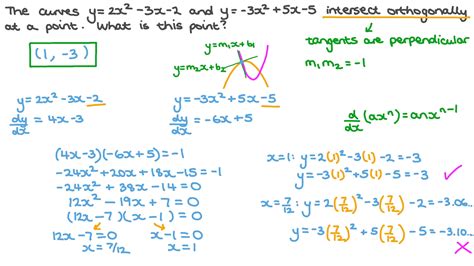 The curves y=2x²-3x-2 and y=-3x²+5x-5 intersect orthogonally
at a point. What is this point?
(1, -3)
y=m₁x+b₁
y=m₂x+b₂
tangents are perpendicular
m₁m₂=-1
y=2x²-3x-2
dy/dx = 4x-3
y=-3x²+5x-5
dy/dx = -6x+5
d/dx (axⁿ)=anxⁿ⁻¹
(4x-3)(-6x+5)=-1
-24x²+20x+18x-15=-1
-24x²+38x-14=0
12x²-19x+7=0
(12x-7)(x-1)=0
12x-7=0
x=7/12
x-1=0
x=1
x=1: y=2(1)²-3(1)-2=-3
y=-3(1)²+5(1)-5=-3
x=7/12: y=2(7/12)²-3(7/12)-2=-3.06...
y=-3(7/12)²+5(7/12)-5=-3.10...